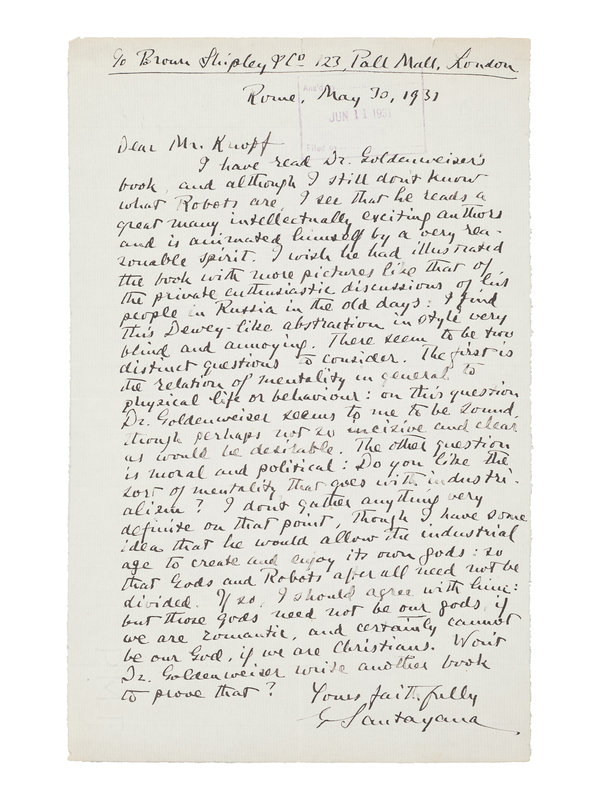 c/o Brown Shipley & Co 123, Pall Mall, London
Rome, May 30, 1931
Ans'd
JUN 11 1931
Filed
Dear Mr. Knopf
I have read Dr. Goldenweiser's
book, and although I still don't know
what Robots are, I see that he reads a
great many intellectually exciting authors
and is animated himself by a very rea-
sonable spirit. I wish he had illustrated
the book with more pictures like that of
the private enthusiastic discussions of his
people in Russia in the old days: I find
this Dewey-like abstraction in style very
blind and annoying. There seem to be two
distinct questions to consider. The first is
the relation of mentality in general to
physical life or behaviour: on this question
Dr. Goldenweiser seems to me to be sound,
though perhaps not so incisive and clear
as would be desirable. The other question
is moral and political: Do you like the
sort of mentality that goes with industri-
alism? I don't gather anything very
definite on that point, though I have some
idea that he would allow the industrial
age to create and enjoy its own gods: so
that Gods and Robots after all need not be
divided. If so, I should agree with him:
but those Gods need not be our gods, if
we are romantic, and certainly cannot
be our God, if we are Christians. Won't
Dr. Goldenweiser write another book
to prove that? Yours faithfully
G Santayana